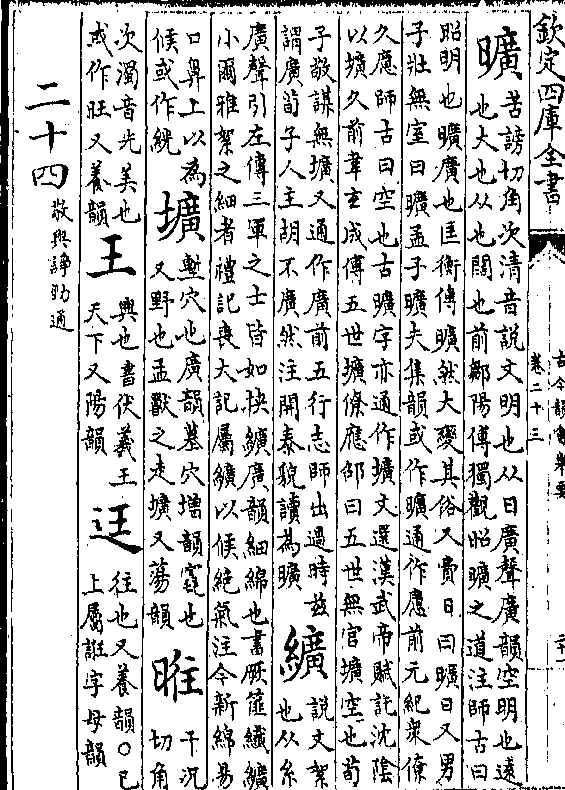 欽定四庫全書
古今韻會舉要
卷二十三
曠苦謗切角次清音說文明也从日廣聲廣韻空明也遠
也大也从也闊也前鄒陽傳獨觀昭曠之道注師古曰
昭明也曠廣也匡衡傳曠然大變其俗又費日曰曠日又男
子壯無室曰曠孟子曠夫集韻或作曠通作應前元紀衆僚
久應師古曰空也古曠字亦通作壙文選漢武帝賦託沈陰
以壙久前韋玄成傳五世壙僚應邵曰五世無官壙空也荀
子敬謀無壙又通作廣前五行志師出過時茲
謂廣荀子人主胡不廣然注開泰貌讀為曠
纊說文絮
也从糸
廣聲引左傳三軍之士皆如挾纊廣韻細綿也書厥篚纖纊
小爾雅絮之細者禮記喪大記屬纊以俟絶氣注今新綿易
口鼻上以為
候或作絖
壙塹穴也廣韻墓穴増韻窟也
又野也孟獸之走壙又蕩韻
暀干況
切角
次濁音光美也
或作旺又養韻
王興也書伏羲王
天下又陽韻
迋往也又養韻○已
上屬誑字母韻
二十四敬與諍勁通